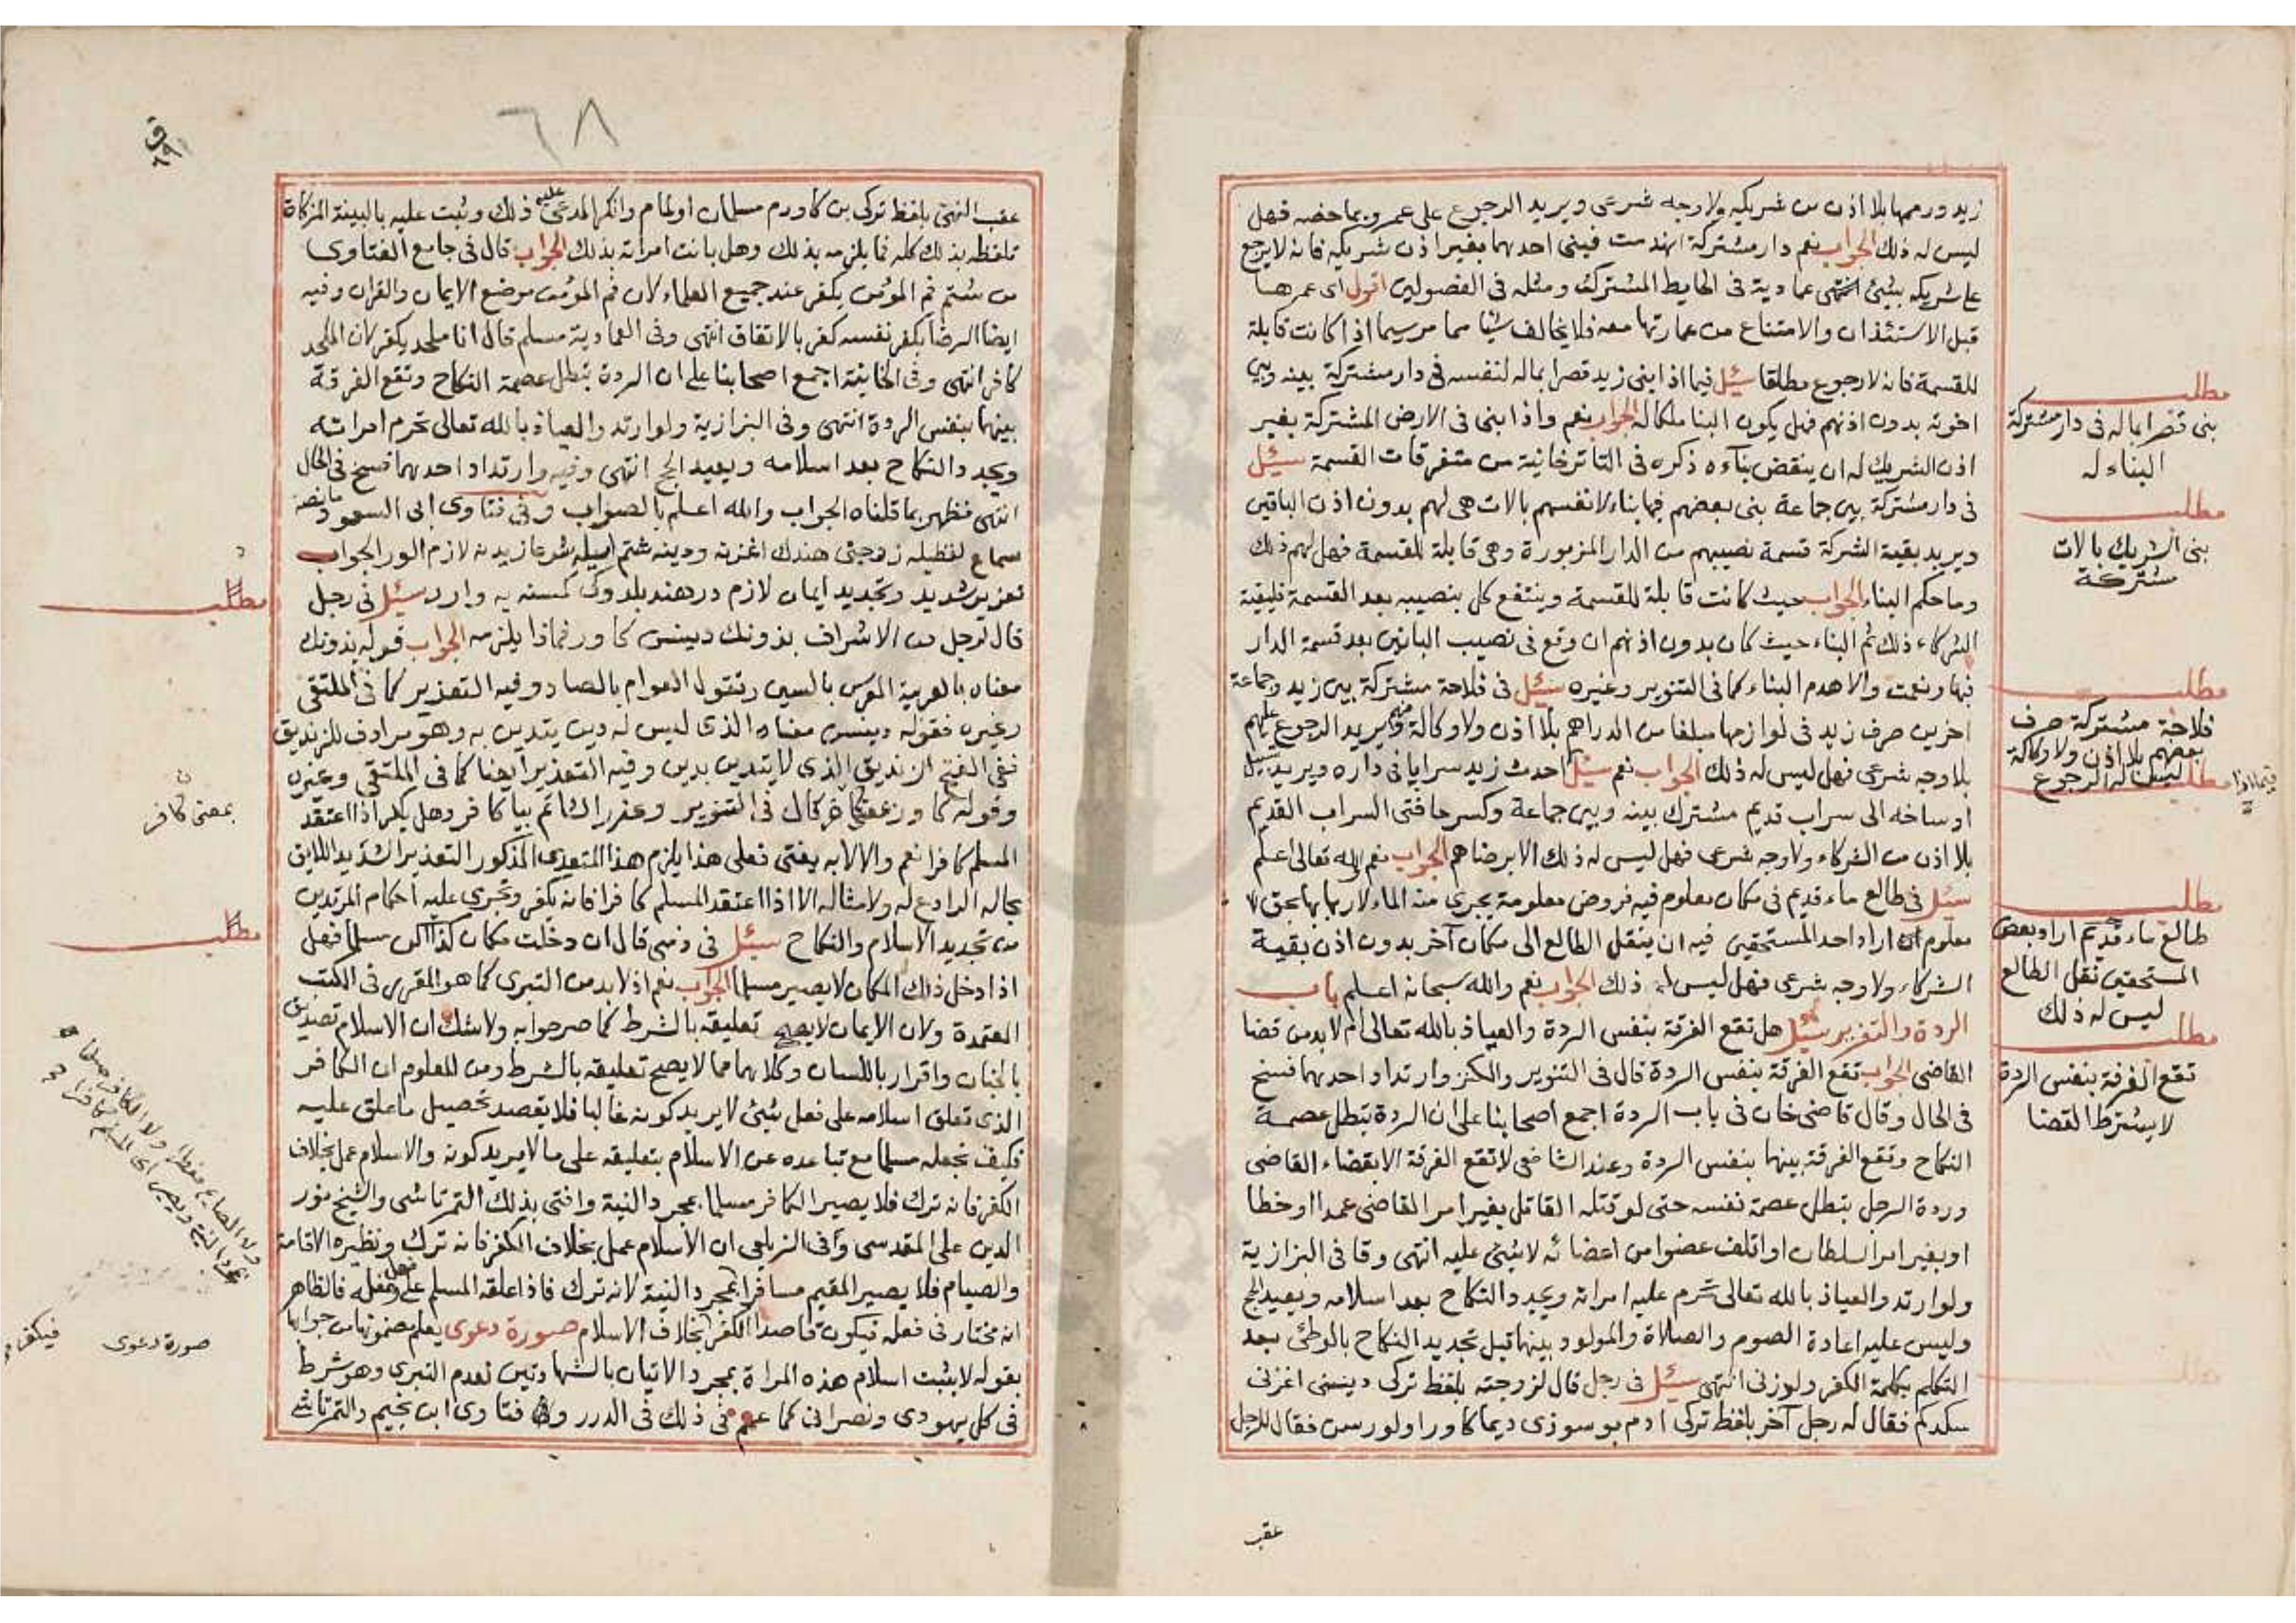 زيد ورممها بلا اذن من شريكه ولا وجه شرعى ويريد الرجوع على عمرو بما خصه فهل
ليس له ذلك الجواب نعم دار مشتركة انهدمت فبنى احدهما بغير اذن شريكه فانه لا يرجع
على شريكه بشئ انتهى عمادية فى الحايط المشترك ومثله فى الفصولين اقول اى عمرها
قبل الاستئذان والامتناع من عمارتها معه فلا يخالف شيا مما مر سيما اذا كانت قابلة
للقسمة فانه لا رجوع مطلقا سئل فيما اذا بنى زيد قصرا بماله لنفسه فى دار مشتركة بينه وبين
اخوته بدون اذنهم فهل يكون البنا ملكا له الجواب نعم واذا بنى فى الارض المشتركة بغير
اذن الشريك له ان ينقض بناءه ذكره فى التاترخانية من متفرقات القسمة سئل
فى دار مشتركة بين جماعة بنى بعضهم فيها بناء لانفسهم بالات هى لهم بدون اذن الباقين
ويريد بقية الشركة قسمة نصيبهم من الدار المزبورة وهى قابلة للقسمة فهل لهم ذلك
وما حكم البناء الجواب حيث كانت قابلة للقسمة وينتفع كل بنصيبه بعد القسمة فلبقية
الشركاء ذلك ثم البناء حيث كان بدون اذنهم ان وقع فى نصيب البانين بعد قسمة الدار
فبها ونعمت والا هدم البناء كما فى التنوير وغيره سئل فى فلاحة مشتركة بين زيد وجماعة
اخرين صرف زيد فى لوازمها مبلغا من الدراهم بلا اذن ولا وكالة منهم ويريد الرجوع عليهم
بلا وجه شرعى فهل ليس له ذلك الجواب نعم سئل احدث زيد سرابا فى داره ويريد تسييل
اوساخه الى سراب قديم مشترك بينه وبين جماعة وكسر حافتى السراب القديم
بلا اذن من الشركاء ولا وجه شرعى فهل ليس له ذلك الا برضاهم الجواب نعم والله تعالى اعلم
سئل فى طالع ماء قديم فى مكان معلوم فيه فروض معلومة يجرى منه الماء لاربابها بحق
معلوم اراد احد المستحقين فيه ان ينقل الطالع الى مكان آخر بدون اذن بقية
الشركاء ولا وجه شرعى فهل ليس له ذلك الجواب نعم والله سبحانه اعلم باب
الردة والتعزير سئل هل تقع الفرقة بنفس الردة والعياذ بالله تعالى ام لا بد من قضا
القاضى الجواب تقع الفرقة بنفس الردة قال فى التنوير والكنز وارتداد احدهما فسخ
فى الحال وقال قاضى خان فى باب الردة اجمع اصحابنا على ان الردة تبطل عصمة
النكاح وتقع الفرقة بينهما بنفس الردة وعند الشافعى لا تقع الفرقة الا بقضاء القاضى
وردة الرجل تبطل عصمة نفسه حتى لو قتله القاتل بغير امر القاضى عمدا او خطا
او بغير امر السلطان او اتلف عضوا من اعضائه لا شئ عليه انتهى وقا فى البزازية
ولو ارتد والعياذ بالله تعالى تحرم عليه امراته ويجدد النكاح بعد اسلامه ويعيد الحج
وليس عليه اعادة الصوم والصلاة والمولود بينهما قبل تجديد النكاح بالوطئ بعد
التكلم بكلمة الكفر ولد زنى انتهى سئل فى رجل قال لزوجته بلفظ تركى دينسنى اغزنى
سكدكم فقال له رجل آخر بلفظ تركى ادم بو سوزى ديما كاور اولورسن فقال للرجل
عقب
مطلب
بنى قصرا بماله فى دار مشتركة
البناء له
مطلب
بنى الشريك بالات
مشتركة
مطلب
فلاحة مشتركة صرف
بعضهم بلا اذن ولا وكالة
ليس له الرجوع
مطلب
مطلب
طالع ماء قديم اراد بعض
المستحقين نقل الطالع
ليس له ذلك
مطلب
تقع الفرقة بنفس الردة
لا يشترط القضا
٦٨
عقب النهى بلفظ تركى بن كاورم مسلمان اولمام وانكر المدعى عليه ذلك وثبت عليه بالبينة المزكاة
تلفظه بذلك كله فما يلزمه بذلك وهل بانت امراته بذلك الجواب قال فى جامع الفتاوى
من شتم فم المؤمن يكفر عند جميع العلماء لان فم المؤمن موضع الايمان والقران وفيه
ايضا الرضا بكفر نفسه كفر بالاتفاق انتهى وفى العمادية مسلم قال انا ملحد يكفر لان الملحد
كافر انتهى وفى الخانية اجمع اصحابنا على ان الردة تبطل عصمة النكاح وتقع الفرقة
بينهما بنفس الردة انتهى وفى البزازية ولو ارتد والعياذ بالله تعالى تحرم امراته
ويجدد النكاح بعد اسلامه ويعيد الحج انتهى وفيه وارتداد احدهما فسخ فى الحال
انتهى فظهر بما قلناه الجواب والله اعلم بالصواب وفى فتاوى ابى السعود ما نصه
سماع لفظيله زوجتى هندك اغزنه ودينه شتم ايسله شرعا زيده نه لازم الور الجواب
تعزير شديد وتجديد ايمان لازم در هند بلدوكى كمسنه يه وارر سئل فى رجل
قال لرجل من الاشراف بزونك دينسن كاور فماذا يلزمه الجواب قوله بزونك
معناه بالعربية المعرس بالسين وتقول العوام بالصاد وفيه التعزير كما فى الملتقى
وغيره فقوله دينسن معناه الذى ليس له دين يتدين به وهو مرادف للزنديق
ففى الفتح الزنديق الذى لا يتدين بدين وفيه التعزير ايضا كما فى الملتقى وغيره
وقوله كاور قال فى التنوير وعزر الشاتم بيا كافر وهل يكفر اذا اعتقد
المسلم كافرا نعم والا لا به يفتى فعلى هذا يلزم هذا المتعدى المذكور التعزير الشديد اللايق
بحاله الرادع له ولامثاله الا اذا اعتقد المسلم كافرا فانه يكفر وتجرى عليه احكام المرتدين
من تجديد الاسلام والنكاح سئل فى ذمى قال ان دخلت مكان كذا اكون مسلما فهل
اذا دخل ذلك المكان لا يصير مسلما الجواب نعم اذ لا بد من التبرى كما هو المقرر فى الكتب
المعتمدة ولان الايمان لا يصح تعليقه بالشرط كما صرحوا به ولا شك ان الاسلام تصديق
بالجنان واقرار باللسان وكلاهما مما لا يصح تعليقه بالشرط ومن المعلوم ان الكافر
الذى تعلق اسلامه على فعل شئ لا يريد كونه غالبا فلا يقصد تحصيل ما علق عليه
فكيف نجعله مسلما مع تباعده عن الاسلام بتعليقه على ما لا يريد كونه والاسلام عمل بخلاف
الكفر فانه ترك فلا يصير الكافر مسلما بمجرد النية وافتى بذلك التمرتاشى والشيخ نور
الدين على المقدسى وفى الزيلعى ان الاسلام عمل بخلاف الكفر فانه ترك ونظيره الاقامة
والصيام فلا يصير المقيم مسافرا بمجرد النية لانه ترك فاذا علقه المسلم على فعل فعله فالظاهر
انه مختار فى فعله فيكون قاصدا الكفر بخلاف الاسلام صورة دعوى يعلم مضمونها من جوابها
بقوله لا يثبت اسلام هذه المراة بمجرد الاتيان بالشهادتين لعدم التبرى وهو شرط
فى كل يهودى ونصرانى كما عمم فى ذلك فى الدرر وفى فتاوى ابن نجيم والتمرتاشى
مطلب
بمعنى كافر
مطلب
ولا الصايم مفطرا ولا الكافر مسلما
بمجرد النية ويصير المسلم كافرا
صورة دعوى
فيكفر